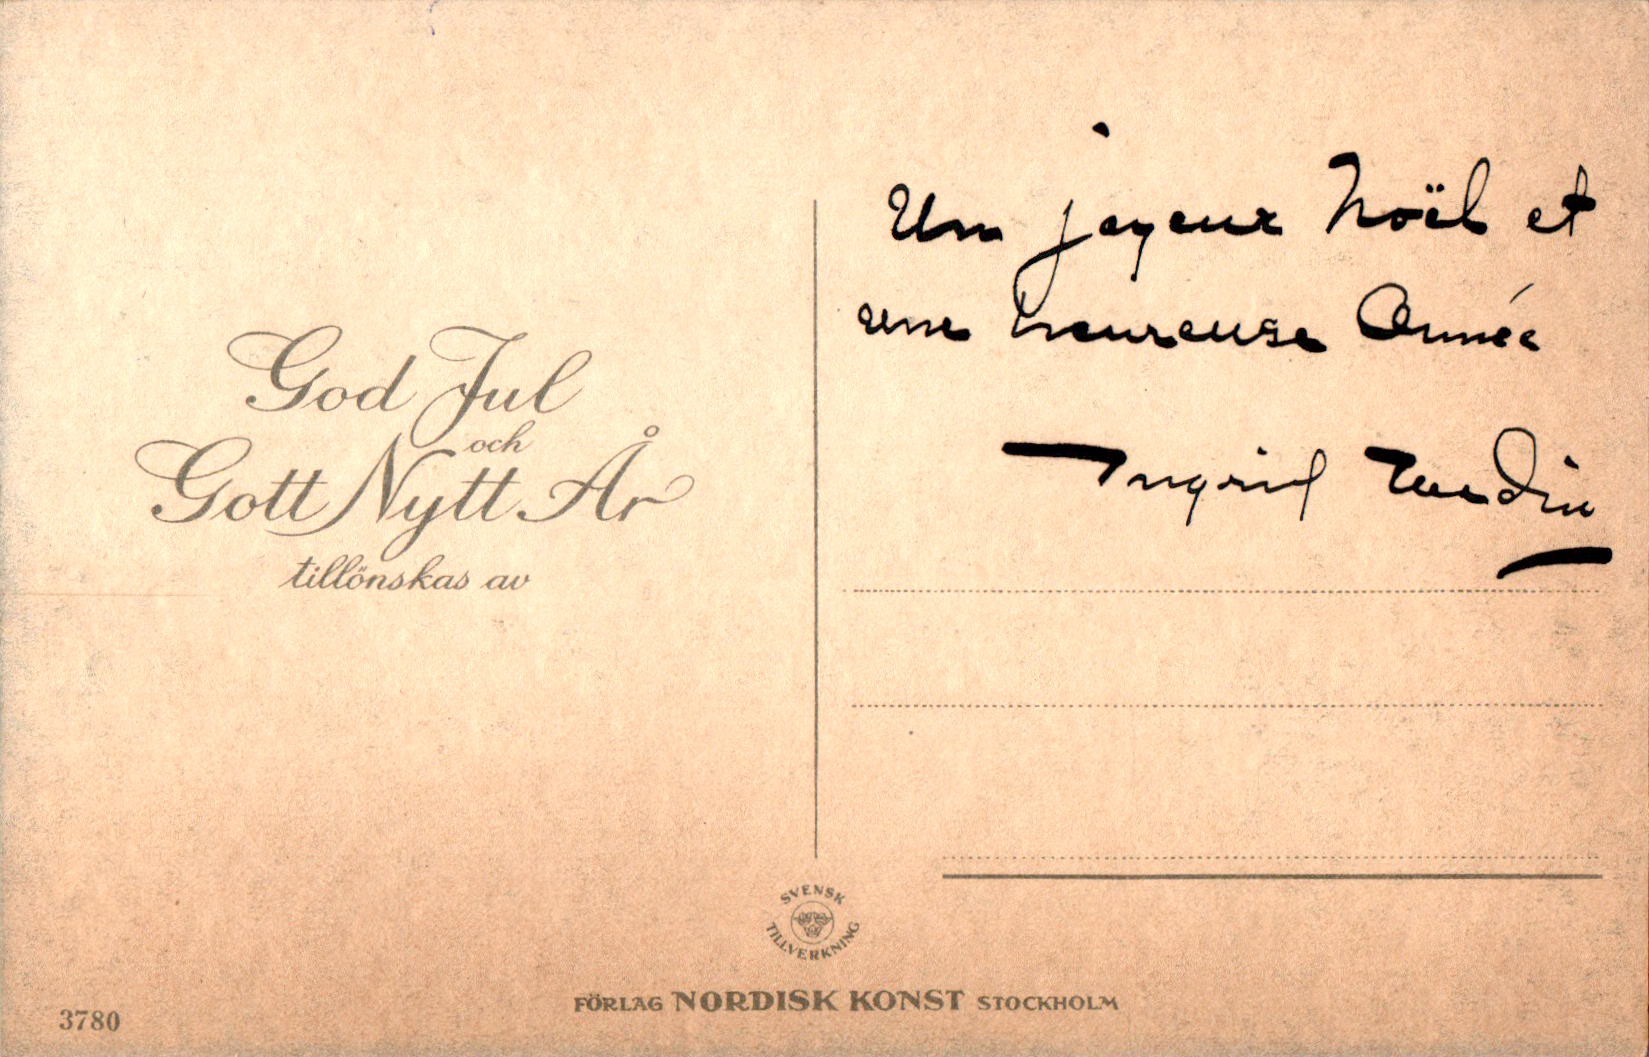 God Jul
och
Gott Nytt År
tillönskas av
Un joyeux Noël et
une heureuse Année
Ingrid
SVENSK
TILLVERKNING
3780
FÖRLAG NORDISK KONST STOCKHOLM